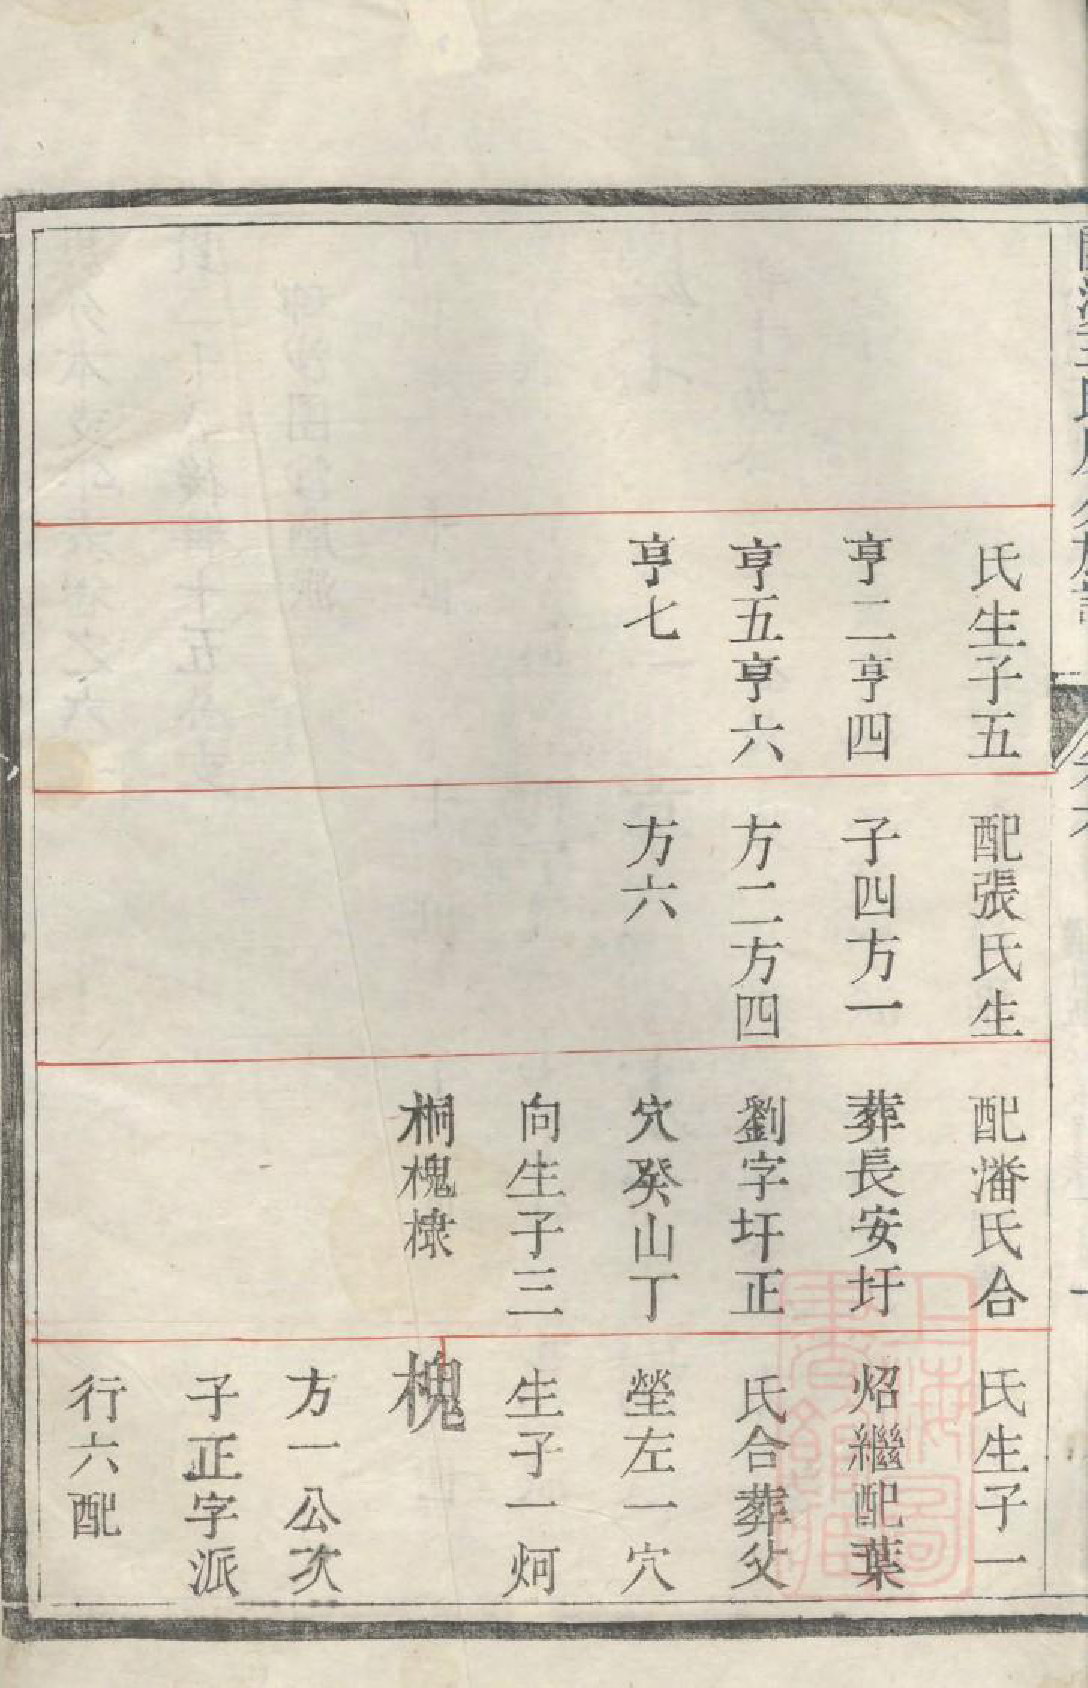 氏生子五
亨二亨四
亨五亨六
亨七
配張氏生
子四方一
方二方四
方六
配潘氏合
葬長安圩
劉字圩正
穴癸山丁
向生子三
桐槐棣
氏生子一
炤繼配葉
氏合葬父
塋左一穴
生子一炯
槐
方一公次
子正字派
行六配